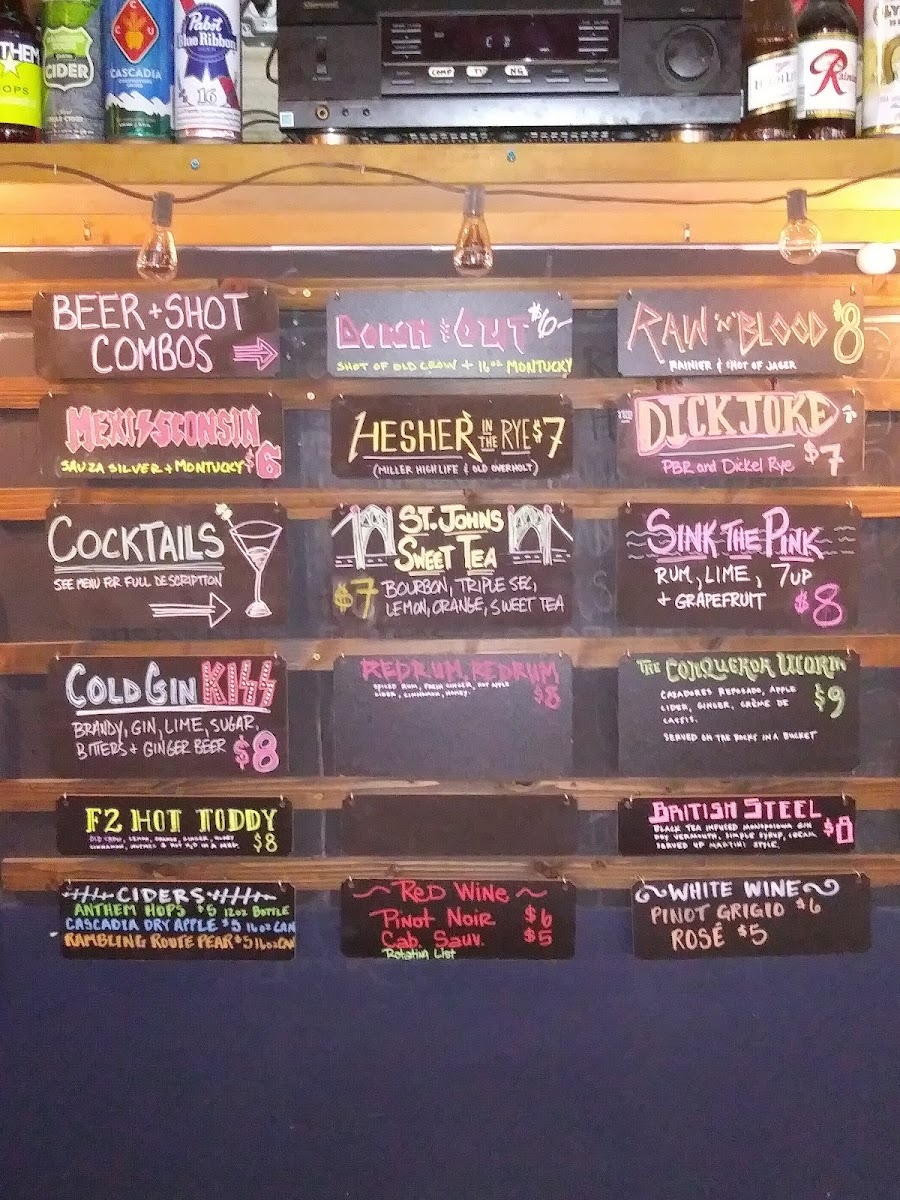 ANTHEM
OPS
CIDER
CASCADIA
Pabst
Blue Ribbon
16
Sherwood
R
BEER + SHOT
COMBOS
DOWN & OUT $6-
SHOT OF OLD CROW + 16oz MONTUCKY
RAW 'N' BLOOD $8
RAINIER & SHOT OF JAGER
MEXI SCONSIN
SAUZA SILVER + MONTUCKY $6
HESHER IN THE RYE $7
(MILLER HIGH LIFE & OLD OVERHOLT)
THE DICK JOKE
PBR and Dickel Rye $7
COCKTAILS
SEE MENU FOR FULL DESCRIPTION
ST. JOHNS
SWEET TEA
$7 BOURBON, TRIPLE SEC,
LEMON, ORANGE, SWEET TEA
SINK THE PINK
RUM, LIME, 7UP
+ GRAPEFRUIT $8
COLD GIN KISS
BRANDY, GIN, LIME, SUGAR,
BITTERS + GINGER BEER $8
REDRUM REDRUM
SPICED RUM, FRESH GINGER, HOT APPLE
CIDER, CINNAMON, HONEY. $8
THE CONQUEROR WORM
CAZADORES REPOSADO, APPLE
CIDER, GINGER, CRÈME DE
CASSIS. $9
SERVED ON THE ROCKS IN A BUCKET
F2 HOT TODDY
OLD CROW, LEMON, ORANGE, GINGER,
CINNAMON, NUTMEG & HOT H2O IN A $8
BRITISH STEEL
BLACK TEA INFUSED MONOPOLOWA GIN
DRY VERMOUTH, SIMPLE SYRUP, CREAM
SERVED UP MARTINI STYLE.
CIDERS
ANTHEM HOPS $5 12oz BOTTLE
CASCADIA DRY APPLE $5 16oz CAN
RAMBLING ROUTE PEAR $5 16oz CAN
RED WINE
PINOT NOIR $6
CAB. SAUV. $5
Rotating List
WHITE WINE
PINOT GRIGIO $6
ROSÉ $5